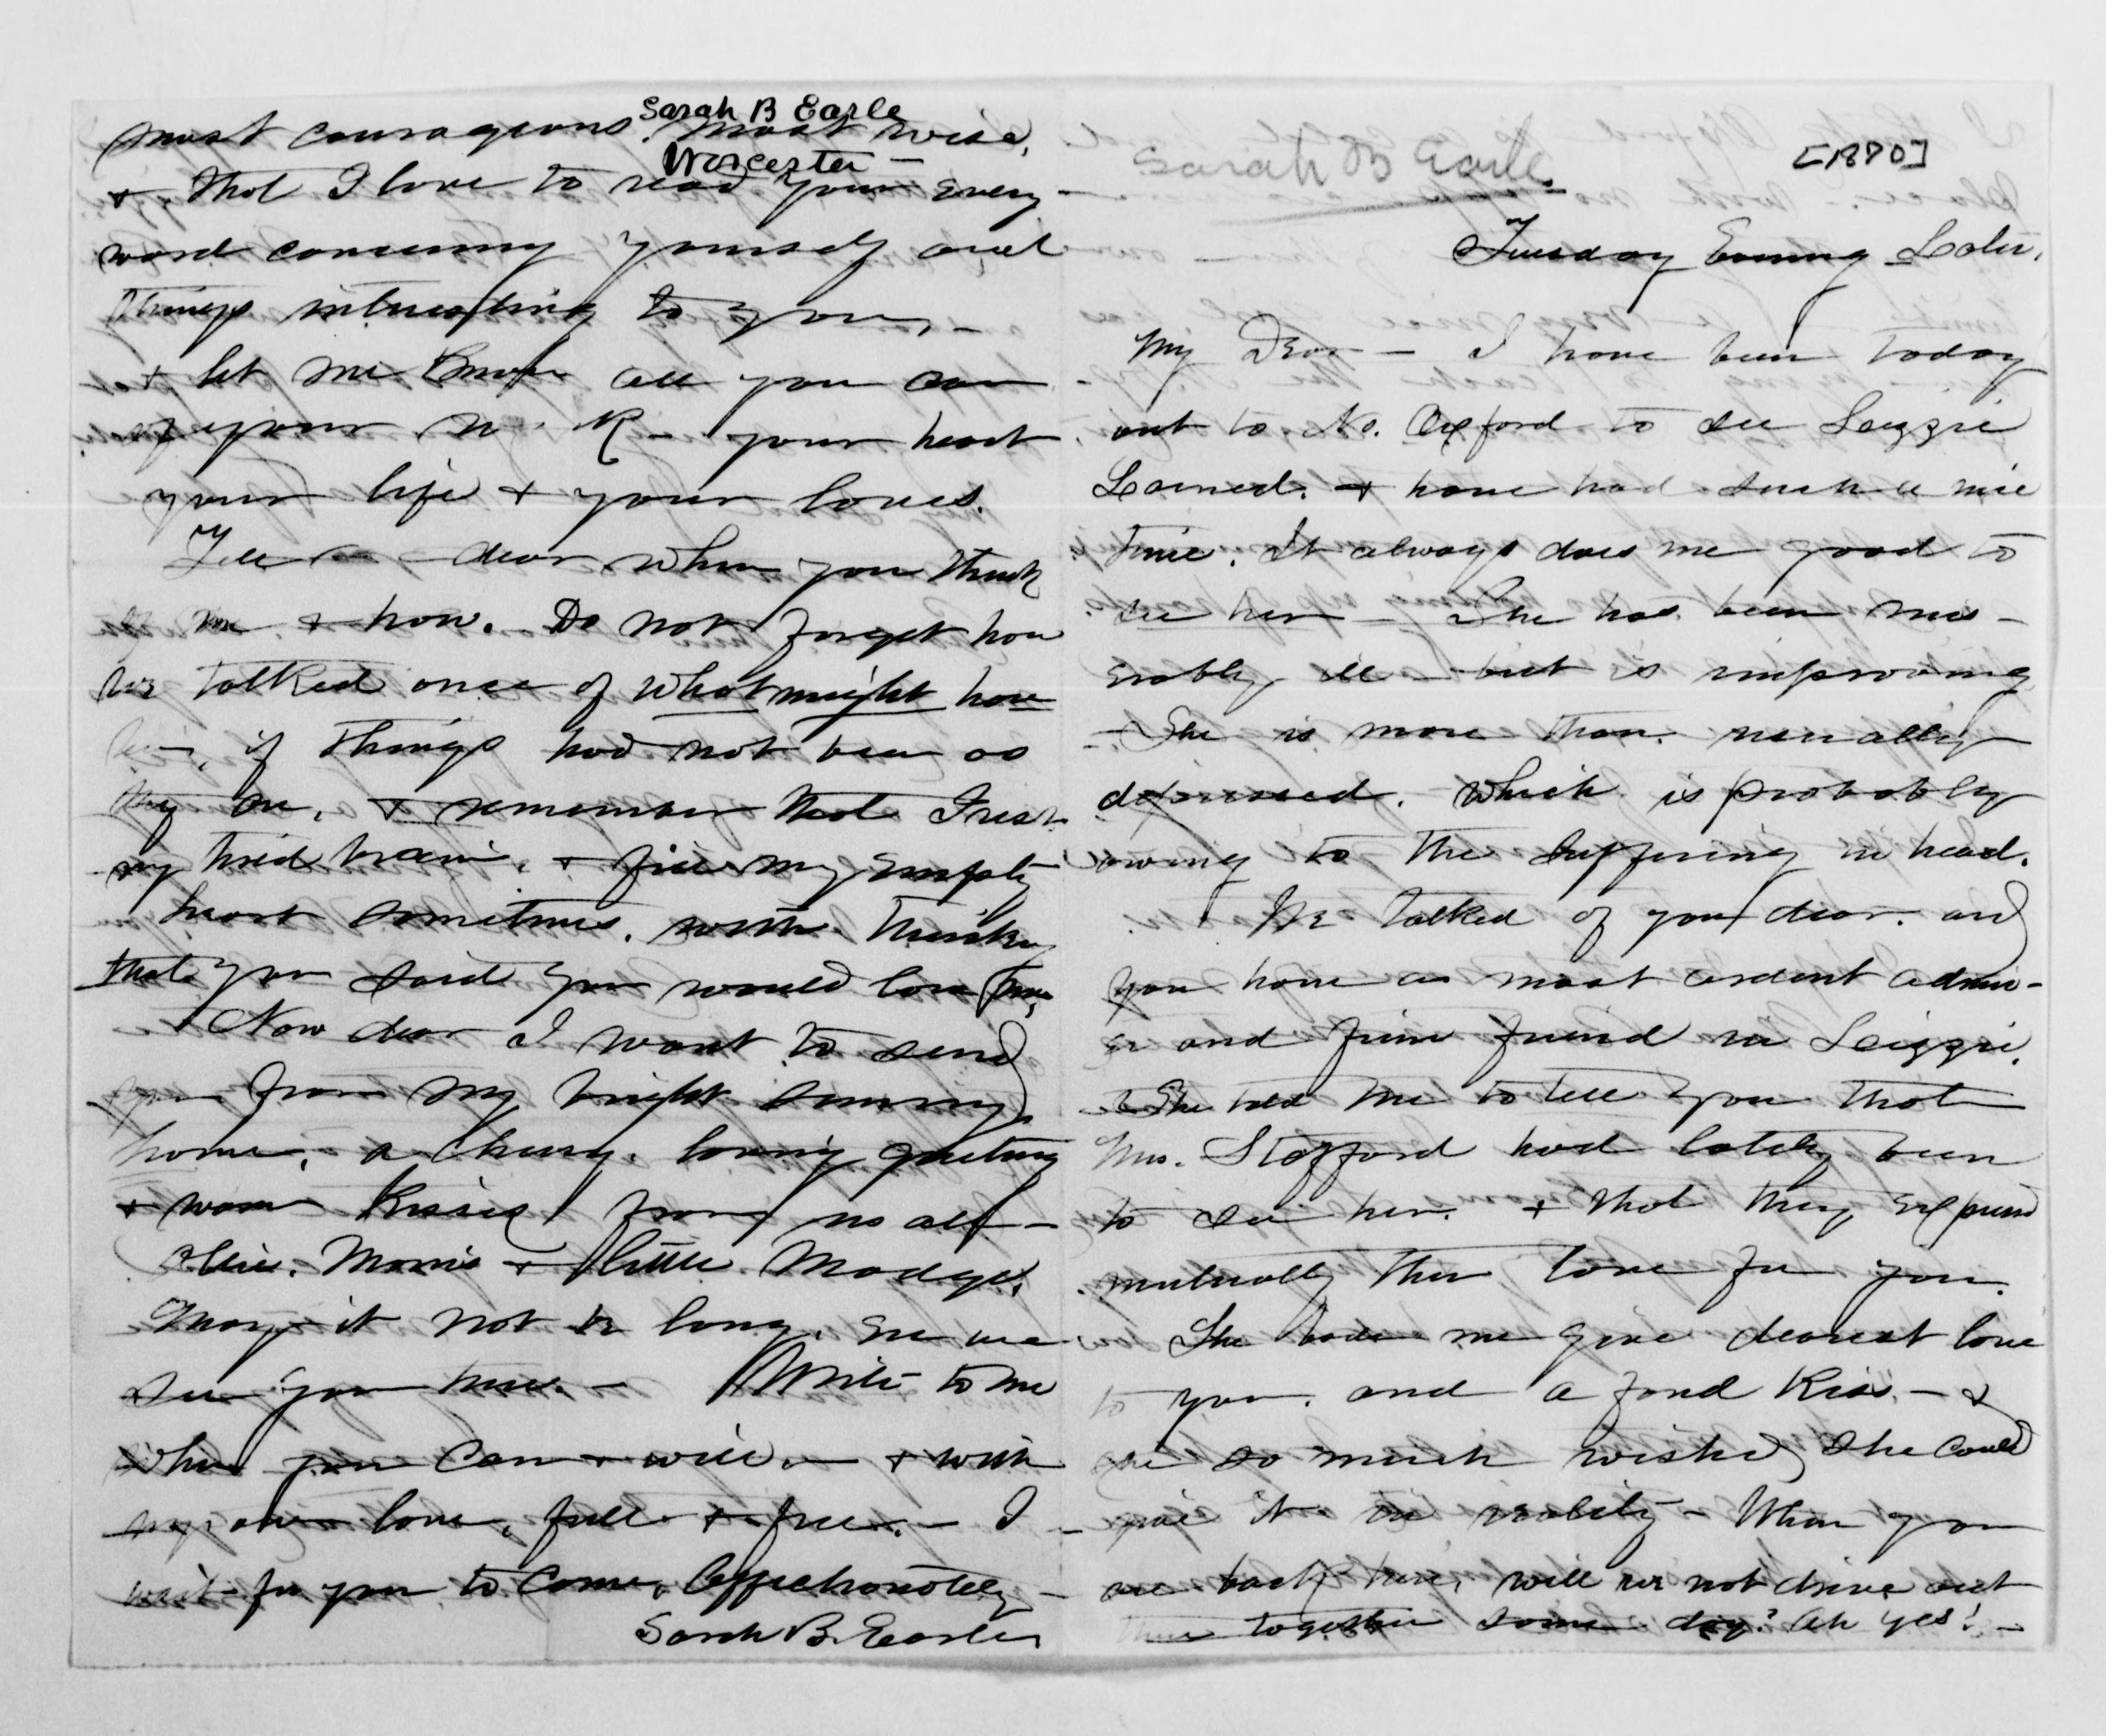 Sarah B Earle
[1870]
Tuesday Evening Later.
My Dear — I have been today
out to No. Oxford to see Lizzie
Learned. + have had such a nice
time. It always does me good to
see her — She has been mis-
erably ill — but is improving
— She is more than usually
depressed. which is probably
owing to the suffering in head.
We talked of you dear. and
you have a most ardent admir-
er and firm friend in Lizzie.
She told me to tell you that
Mrs. Stafford had lately been
to see her. + that they expressed
mutually their love for you.
She bade me give dearest love
to you. and a fond Kiss. — &
she so much wished she could
give it in reality — When you
are back here, will we not drive out
there together some day? Ah yes! —
Sarah B Earle
Worcester —
most courageous. most wise,
+ that I love to read your every
word concerning yourself and
things interesting to you, —
+ let me know all you can
of your your heart
your life + your loves.
Tell dear when you think
of me + how. Do not forget how
we talked once of what might have
been, if things had not been as
they are, + remember that I rest
my tired brain, + fill my empty
heart sometimes. with thinking
that you said you would love me.
Now dear I want to send
you from my bright sunny
home, a cheery. loving greeting
+ warm Kisses from us all —
Morris + little Madge.
May it not be long, ere we
see you here. — Write to me
when you can + will. — + with
my own love, full + free. — I
wait for you to come. Affectionately —
Sarah B. Earle